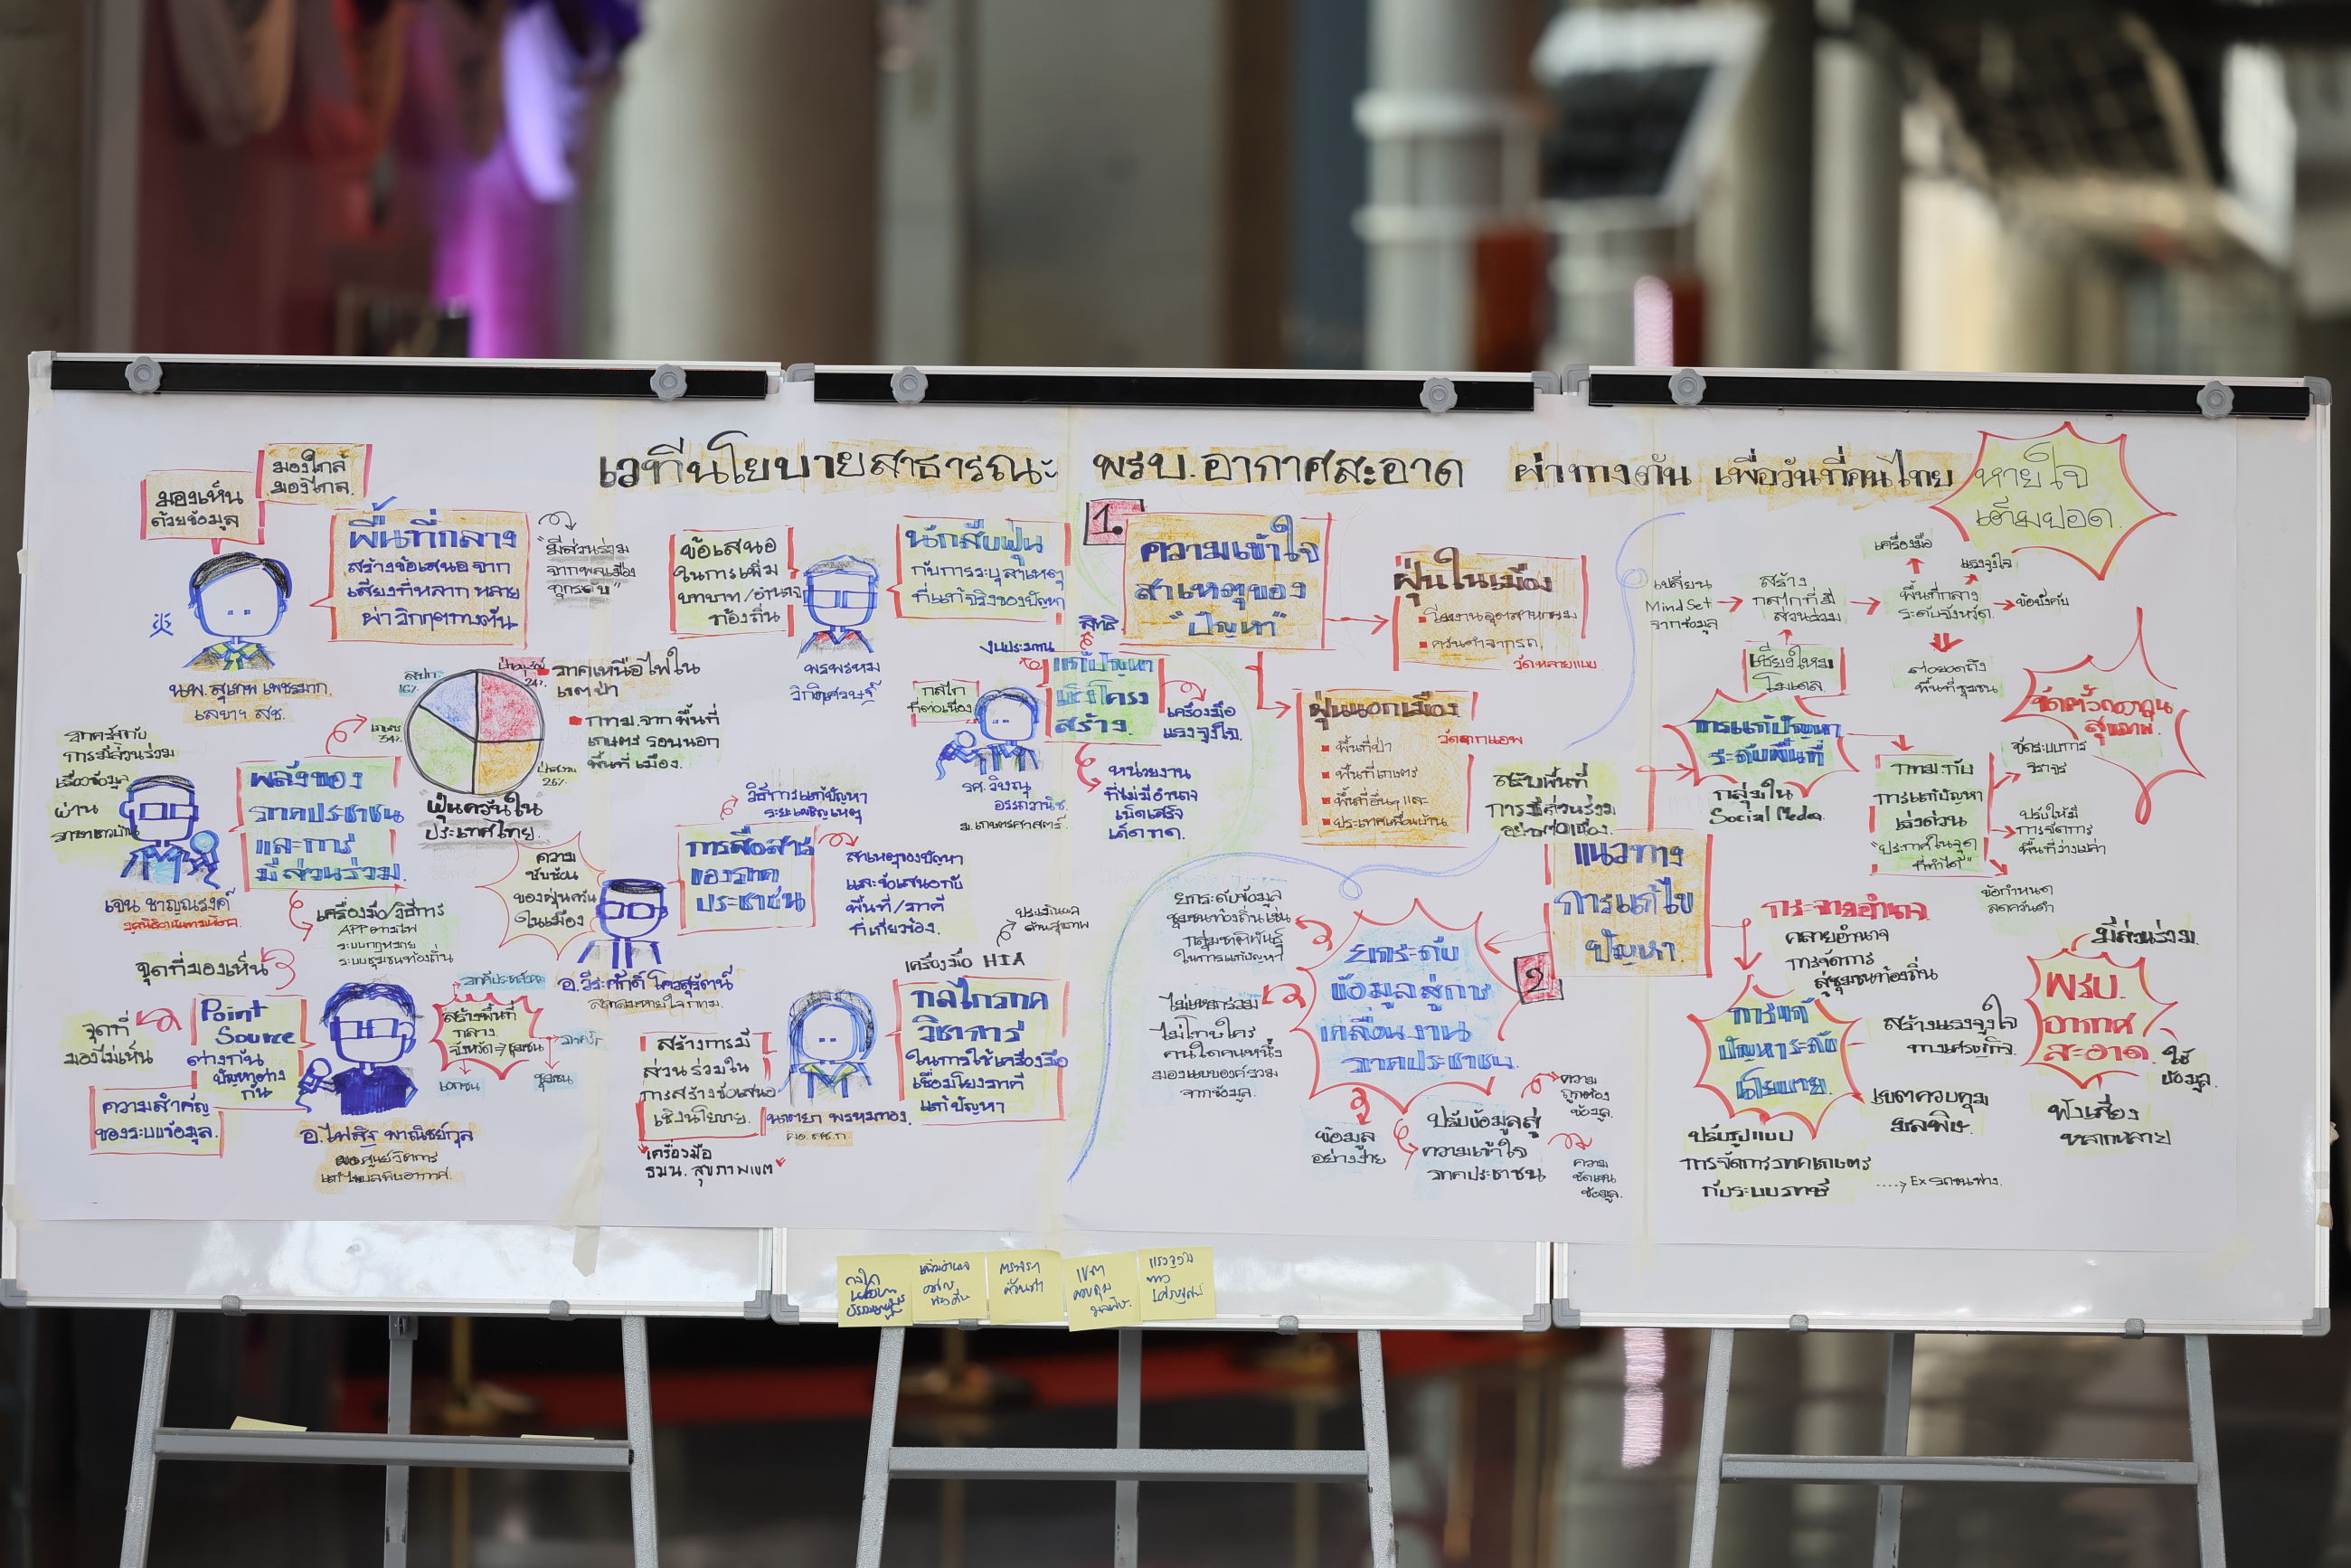 เวทีนโยบายสาธารณะ พรบ.อากาศสะอาด ผ่าทางตัน เพื่อวันที่คนไทย
หายใจ
เต็มปอด.
มองใกล้
มองไกล.
มองเห็น
ด้วยข้อมูล
พื้นที่กลาง
สร้างข้อเสนอจาก
เสียงที่หลากหลาย
ผ่าวิกฤตทางตัน
"มีส่วนร่วม
จากพลเมือง
ทุกระดับ"
นพ.สุเทพ เพชรมาก.
เลขาฯ สช.
ข้อเสนอ
ในการเพิ่ม
บทบาท/อำนาจ
ท้องถิ่น
นักสืบฝุ่น
กับการระบุสาเหตุ
ที่แท้จริงของปัญหา
พรพรหม
วิกิตเศรษฐ์
สปก.
16%
24%
เกษตร
34%
26%
"ฝุ่นควันใน"
ประเทศไทย.
ภาคเหนือไฟใน
เขตป่า
กทม.จากพื้นที่
เกษตร รอบนอก
พื้นที่เมือง.
ภาครัฐกับ
การมีส่วนร่วม
เรื่องข้อมูล
ผ่าน
พลังของ
ภาคประชาชน
และการ
มีส่วนร่วม.
เจน ชาญณรงค์
เครื่องมือ/วิธีการ
ระบบกฎหมาย
ระบบชุมชนท้องถิ่น
จุดที่มองเห็น
จุดที่
มองไม่เห็น
Point
Source
ต่างกัน
ปัญหาต่าง
กัน
ความสำคัญ
ของระบบข้อมูล.
สร้างพื้นที่
กลาง.
จังหวัด→ชุมชน
ภาครัฐ
เอกชน
ชุมชน
ความ
ซับซ้อน
ของฝุ่นควัน
ในเมือง
วิธีการแก้ปัญหา
ระยะเผชิญเหตุ
การสื่อสาร
ของภาค
ประชาชน
สาเหตุของปัญหา
และข้อเสนอกับ
พื้นที่/ภาคี
ที่เกี่ยวข้อง.
สร้างการมี
ส่วนร่วมใน
การสร้างข้อเสนอ
เชิงนโยบาย.
เครื่องมือ
ธมน. สุขภาพเขต
ประเมินผล
ด้านสุขภาพ
เครื่องมือ HIA
กลไกภาค
วิชาการ
ในการใช้เครื่องมือ
เชื่อมโยงภาคี
แก้ปัญหา
สิทธิ.
งบประมาณ
กลไก
ที่ต่อเนื่อง
แก้ปัญหา
เชิงโครง
สร้าง.
เครื่องมือ
แรงจูงใจ.
หน่วยงาน
ที่ไม่มีอำนาจ
เบ็ดเสร็จ
เด็ดขาด.
รศ.วิษณุ
อรรถวานิช.
ม.เกษตรศาสตร์.
1.
ความเข้าใจ
สาเหตุของ
"ปัญหา"
ฝุ่นในเมือง
โรงงานอุตสาหกรรม
ควันดำจากรถ.
ฝุ่นนอกเมือง.
พื้นที่ป่า
พื้นที่เกษตร
พื้นที่อื่นๆ และ
ประเทศเพื่อนบ้าน.
2
แนวทาง
การแก้ไข
ปัญหา.
ยกระดับ
ข้อมูลสู่การ
เคลื่อนงาน
ภาคประชาชน.
ยกระดับข้อมูล
ชุมชนท้องถิ่นเช่น
กลุ่มชาติพันธุ์
ในการแก้ปัญหา
ไม่เหมารวม
ไม่โทษใคร
คนใดคนหนึ่ง
มองแบบองค์รวม
จากข้อมูล.
ข้อมูล
อย่างง่าย
ปรับข้อมูลสู่
ความเข้าใจ
ภาคประชาชน
ความ
ถูกต้อง
ข้อมูล.
ความ
ชัดเจน
ข้อมูล.
เปลี่ยน
Mind Set
จากข้อมูล
สร้าง
กลไกที่มี
ส่วนร่วม
เครื่องมือ
แรงจูงใจ
พื้นที่กลาง
ระดับจังหวัด.
ข้อบังคับ
ต่อยอดถึง
พื้นที่ชุมชน
เชียงใหม่
โมเดล.
การแก้ปัญหา
ระดับพื้นที่
กลุ่มใน
Social Media
กทม.กับ
การแก้ปัญหา
เร่งด่วน
"ประกาศในจุด
ที่ทำได้"
จัดระบบการ
จราจร
ปรับให้มี
การจัดการ
พื้นที่ว่างเปล่า
ข้อกำหนด
ลดควันดำ
กระจายอำนาจ.
คลายอำนาจ
การจัดการ
สู่ชุมชนท้องถิ่น
การแก้
ปัญหาระดับ
นโยบาย.
สร้างแรงจูงใจ
ทางเศรษฐกิจ.
เขตควบคุม
มลพิษ.
ปรับรูปแบบ
การจัดการภาคเกษตร
กับระบบภาษี
มีส่วนร่วม.
พรบ.
อากาศ
สะอาด.
ใช้
ข้อมูล.
ฟังเสียง
หลากหลาย
เขต
ควบคุม
มลพิษ.